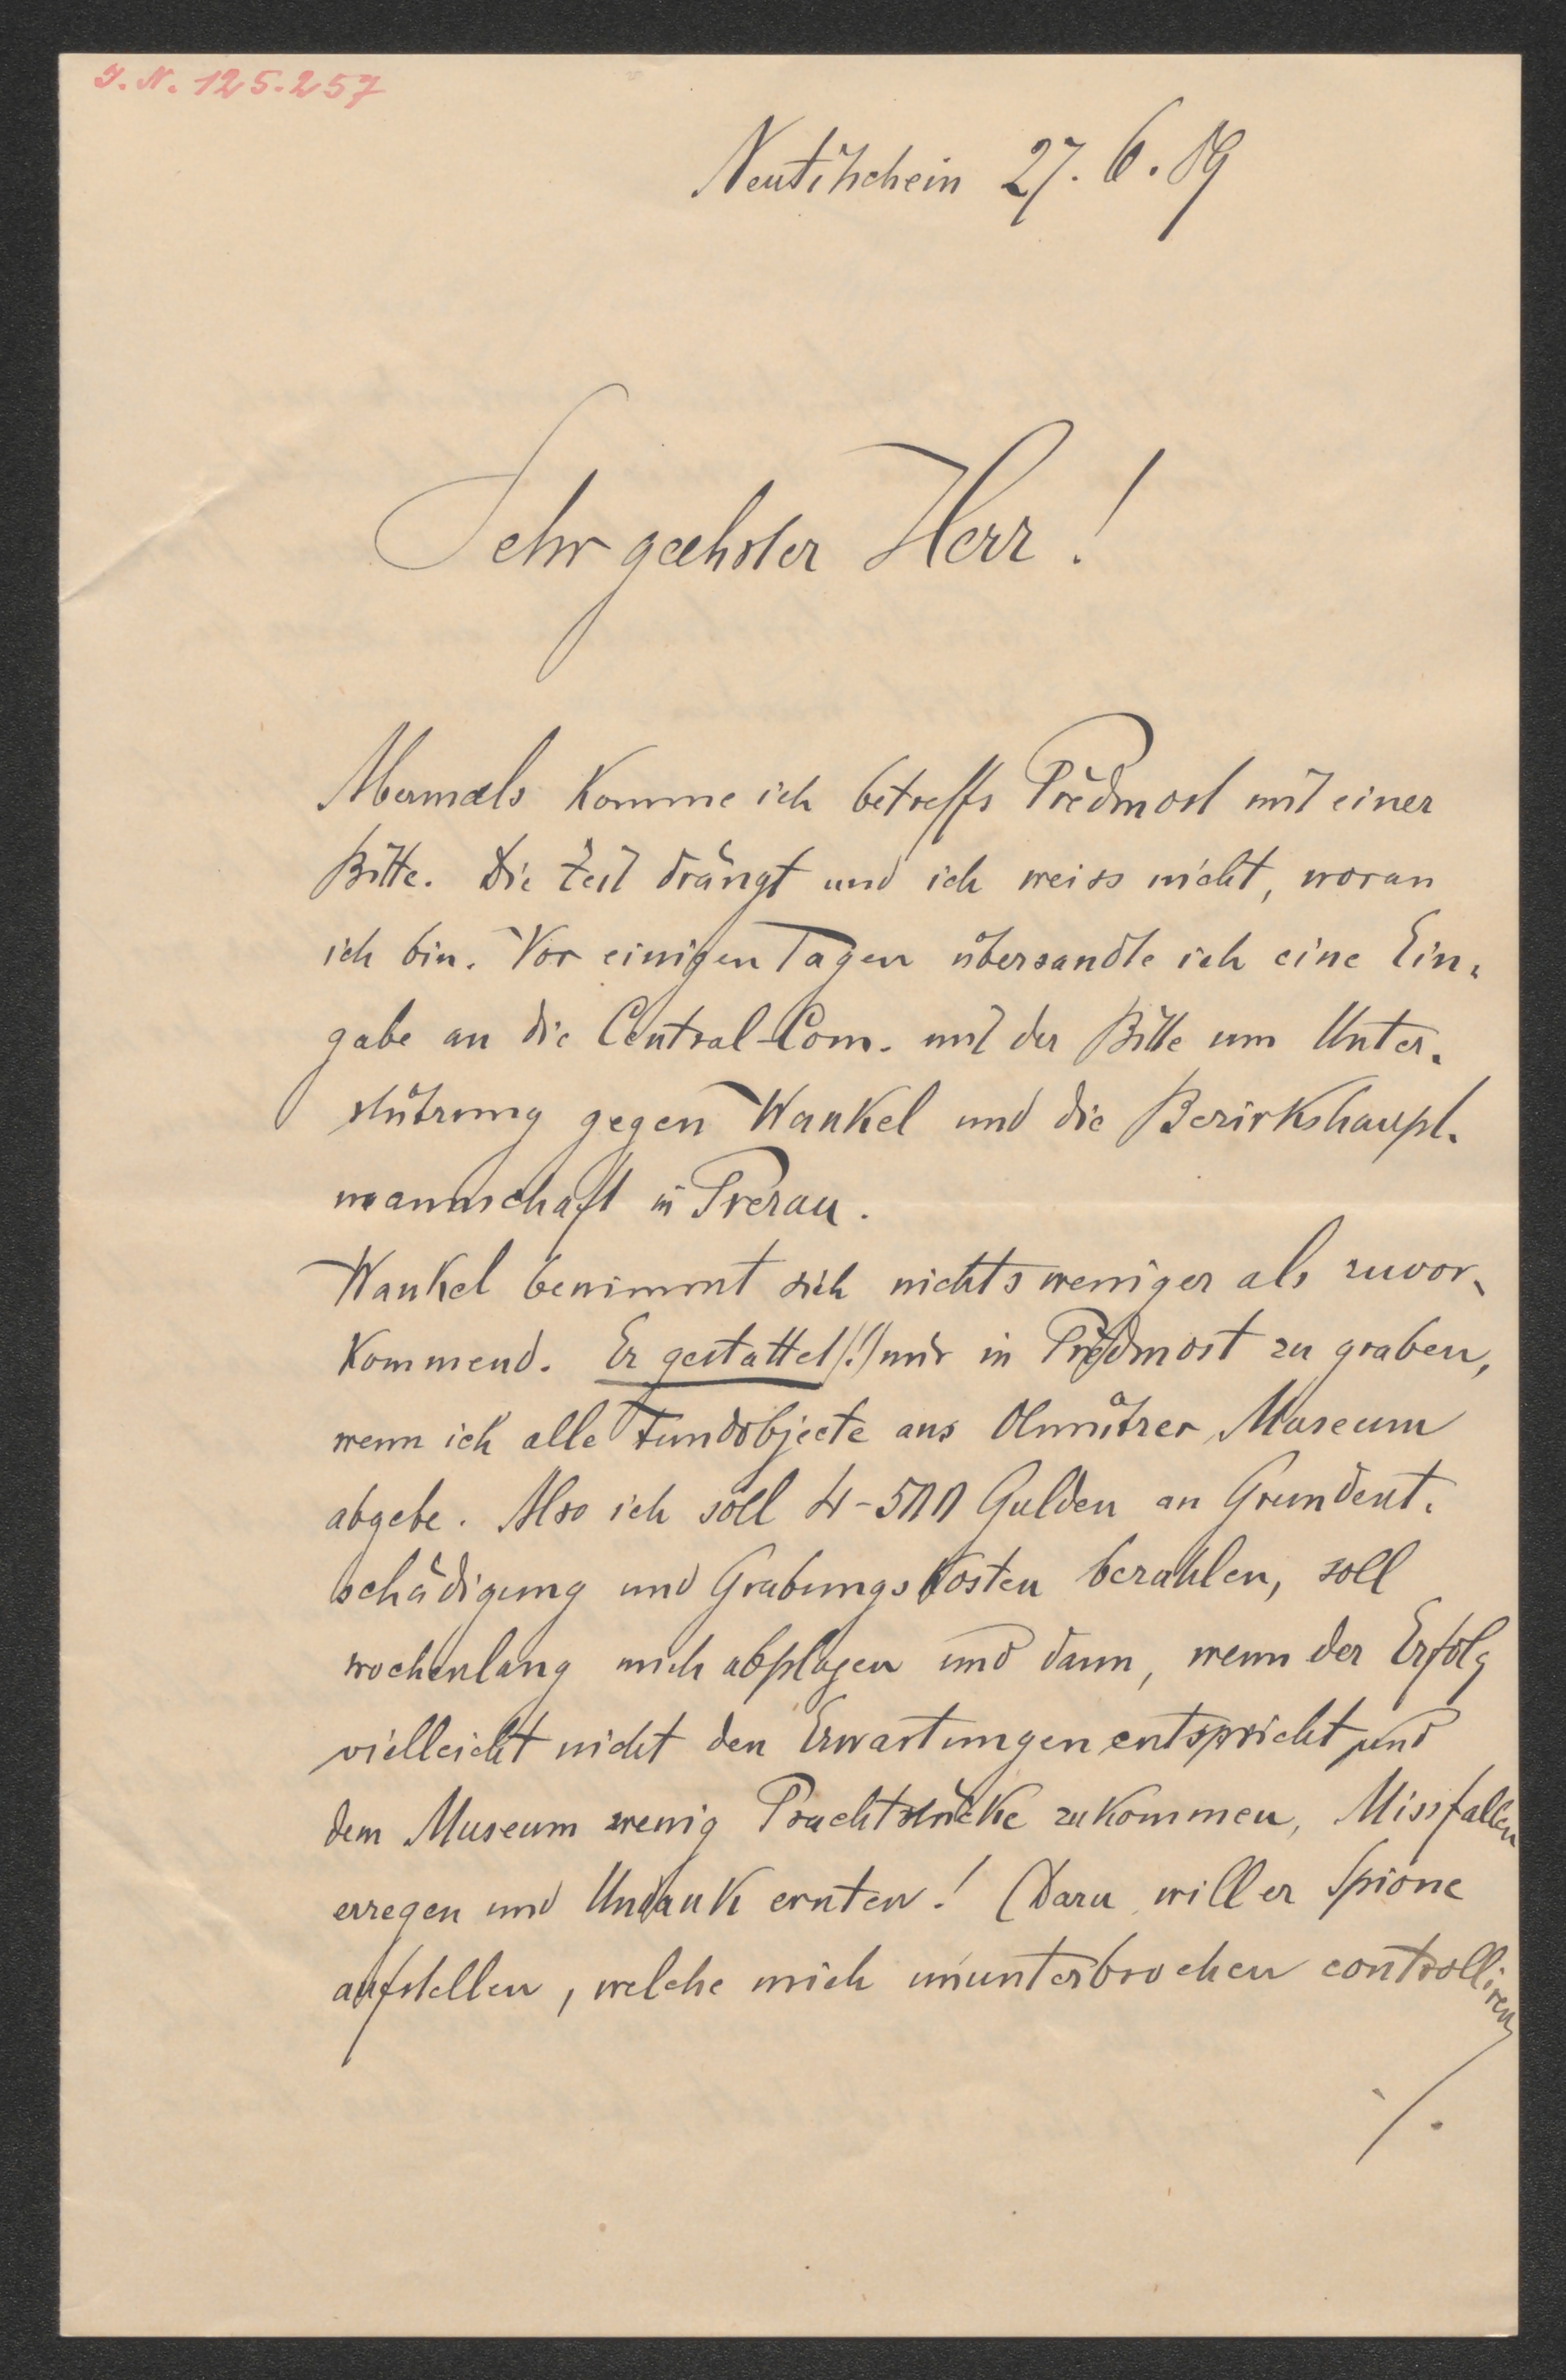 I. N. 125.257
Neutitschein 27. 6. 89
Sehr geehrter Herr!
Abermals komme ich betreffs Předmost mit einer
Bitte. Die Zeit drängt und ich weiss nicht, woran
ich bin. Vor einigen Tagen übersandte ich eine Ein-
gabe an die Central-Com. mit der Bitte um Unter-
stützung gegen Wankel und die Bezirkshaupt-
mannschaft in Prerau.
Wankel benimmt sich nichts weniger als zuvor-
kommend. Er gestattet(!) mir in Předmost zu graben,
wenn ich alle Fundobjecte ans Olmützer Museum
abgebe. Also ich soll 4-500 Gulden an Grundent-
schädigung und Grabungskosten bezahlen, soll
wochenlang mich abplagen und dann, wenn der Erfolg
vielleicht nicht den Erwartungen entspricht und
dem Museum wenig Prachtstücke zukommen, Missfallen
erregen und Undank ernten! (Dazu will er Spione
aufstellen, welche mich ununterbrochen controlliren
./.